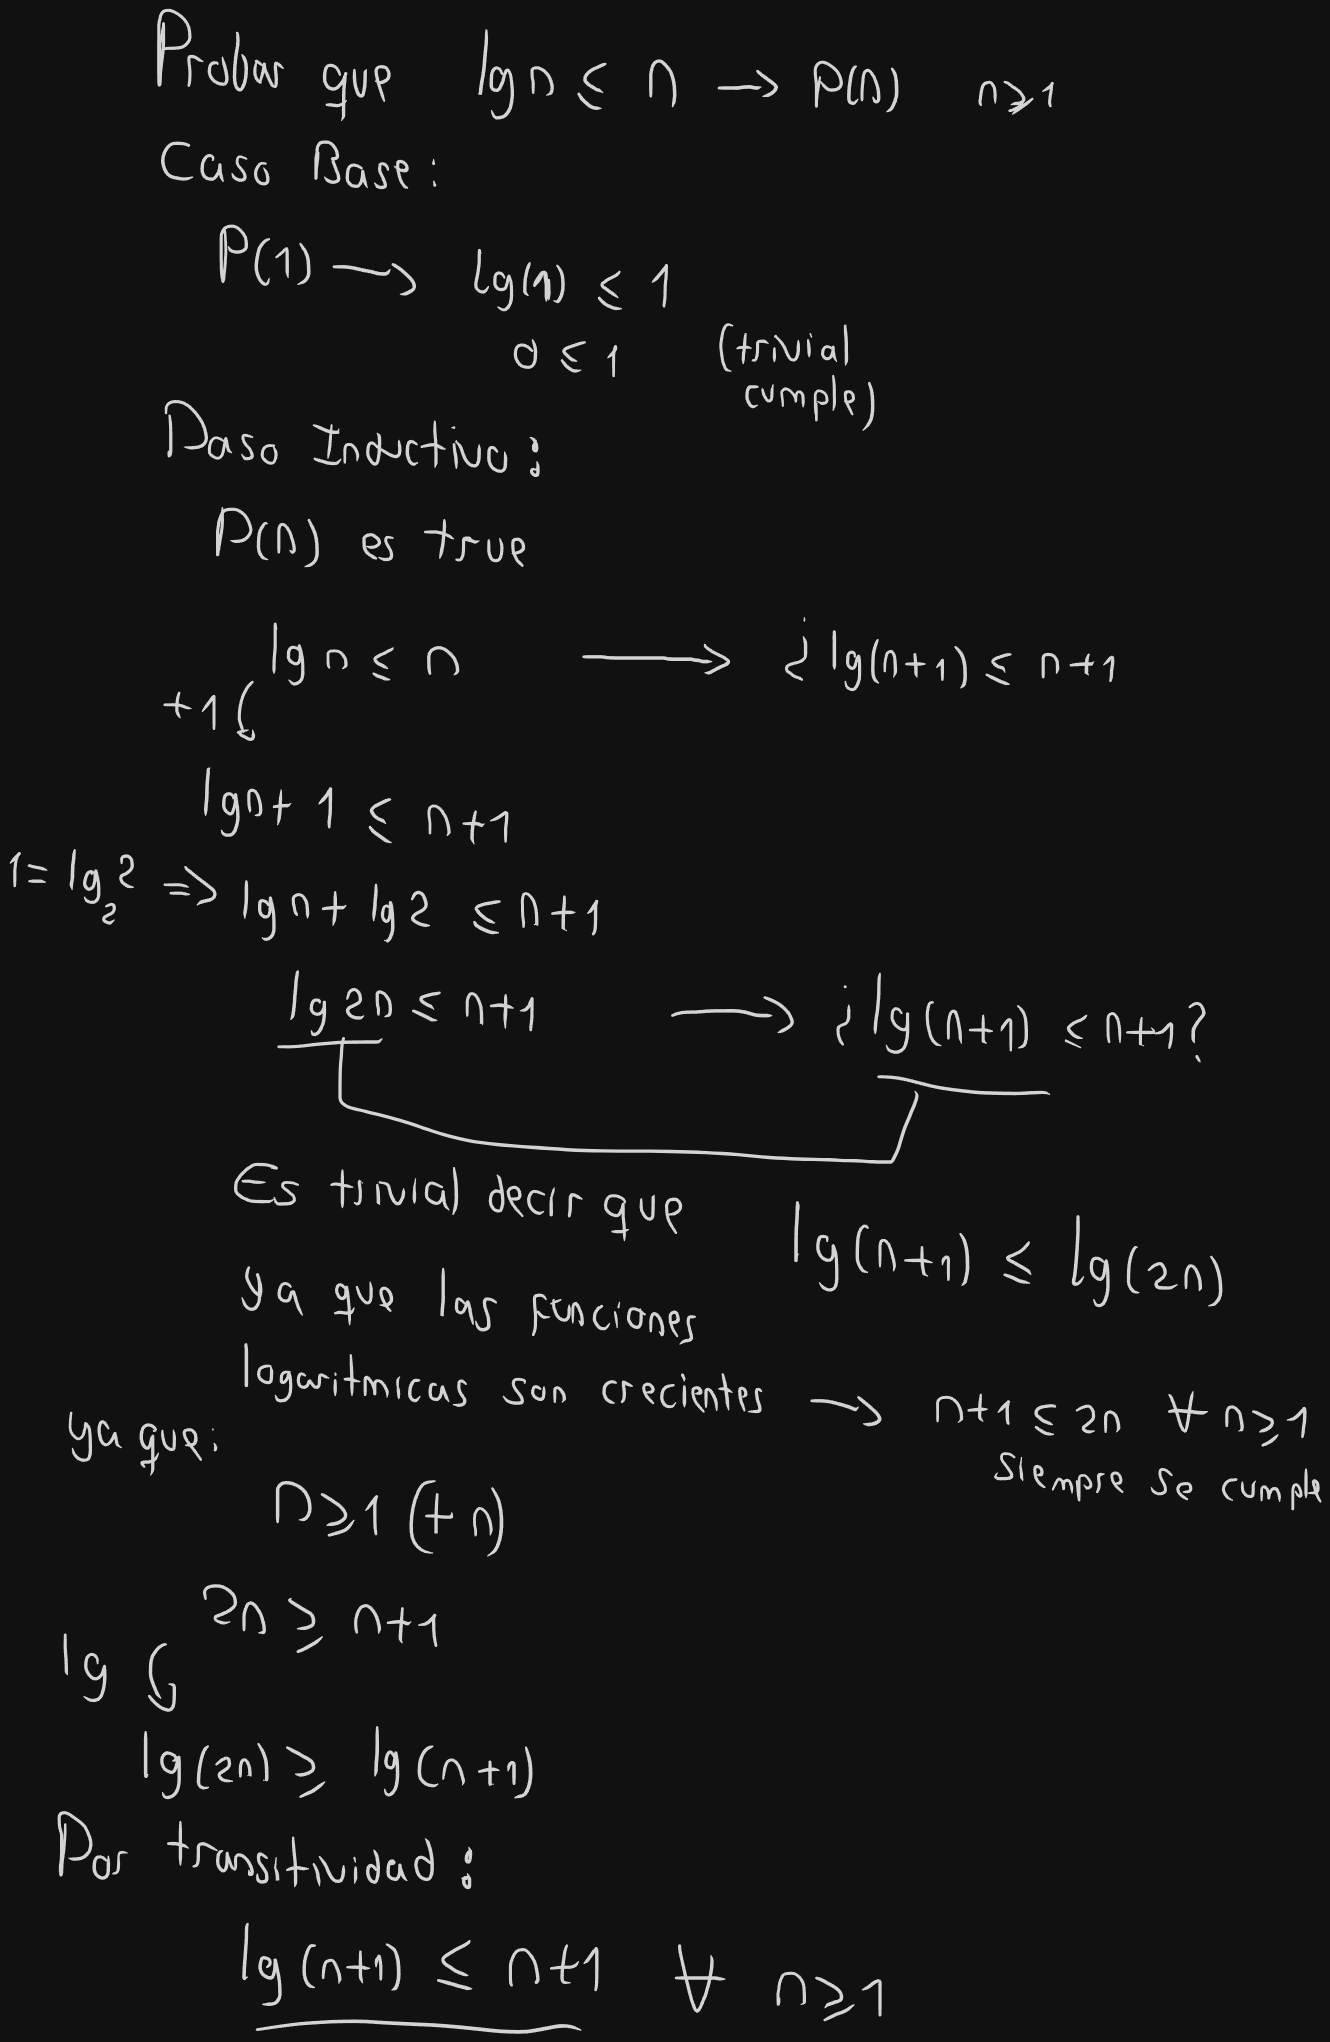 Probar que lg n ≤ n → P(n) n≥1
Caso Base:
P(1) → lg(1) ≤ 1
0 ≤ 1 (trivial
cumple)
Paso Inductivo:
P(n) es true
lg n ≤ n → ¿ lg(n+1) ≤ n+1
+1
lg n + 1 ≤ n+1
1 = lg₂2 => lg n + lg 2 ≤ n+1
lg 2n ≤ n+1 → ¿ lg(n+1) ≤ n+1?
Es trivial decir que lg(n+1) ≤ lg(2n)
ya que las funciones
logaritmicas son crecientes → n+1 ≤ 2n ∀ n≥1
siempre se cumple
ya que:
n≥1 (+n)
2n ≥ n+1
lg
lg(2n) ≥ lg(n+1)
Por transitividad:
lg(n+1) ≤ n+1 ∀ n≥1